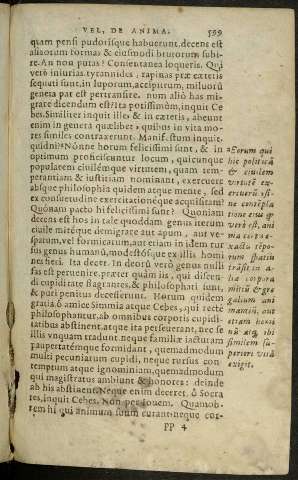 VEL, DE ANIMA. 599
quam pensi pudorisque habuerunt, decens est
asinorum formas & eiusmodi brutorum subi-
re. An non putas? Consentanea loqueris. Qui
verò iniurias, tyrannides, rapinas præ cæteris
sequuti sunt, in luporum, accipitrum, miluorū
genera par est pertransire. num aliò has mi-
grare dicendum est? Ita potissimùm, inquit Ce
bes. Similiter inquit illes & in cæteris, abeunt
enim in genera quælibet, quibus in vita mo-
res similes contraxerunt. Manifestum inquit.
quidni? Nónne horum felicissimi sunt, & in
optimum proficiscuntur locum, quicunque
popularem ciuilémque virtutem, quam tem-
perantiam & iustitiam nominant, exercuere
absque philosophia quidem atque mente, sed
ex consuetudine exercitationéque acquisitam?
Quónam pacto hi felicissimi sunt? Quoniam
decens est hos in tale quoddam genus iterum
ciuile mitéque demigrare aut apum, aut ve-
sparum, vel formicarum, aut etiam in idem rur
sus genus humanū, modestósque ex illis homi
nes fieri. Ita decet. In deorū verò genus nulli
fas est peruenire, præter quàm iis, qui discen-
di cupiditate flagrantes, & philosophati sunt,
& puri penitus decesserunt. Horum quidem
gratia, ô amice Simmia atque Cebes, qui rectè
philosophantur, ab omnibus corporis cupidi-
tatibus abstinent, atque ita perseuerant, nec se
illis vnquam tradunt. neque familiæ iacturam
paupertatémque formidant, quemadmodum
multi pecuniarum cupidi, neque rursus con-
temptum atque ignominiam, quemadmodum
qui magistratus ambiunt & honores: deinde
ab his abstinent. Neque enim deceret, ô Socra
tes, inquit Cebes. Non per Iouem. Quamob-
rem hi qui animum suum curant, neque cor-
PP 4
Eorum qui
hîc politicā
& ciuilem
virtutē ex-
ercuerūt